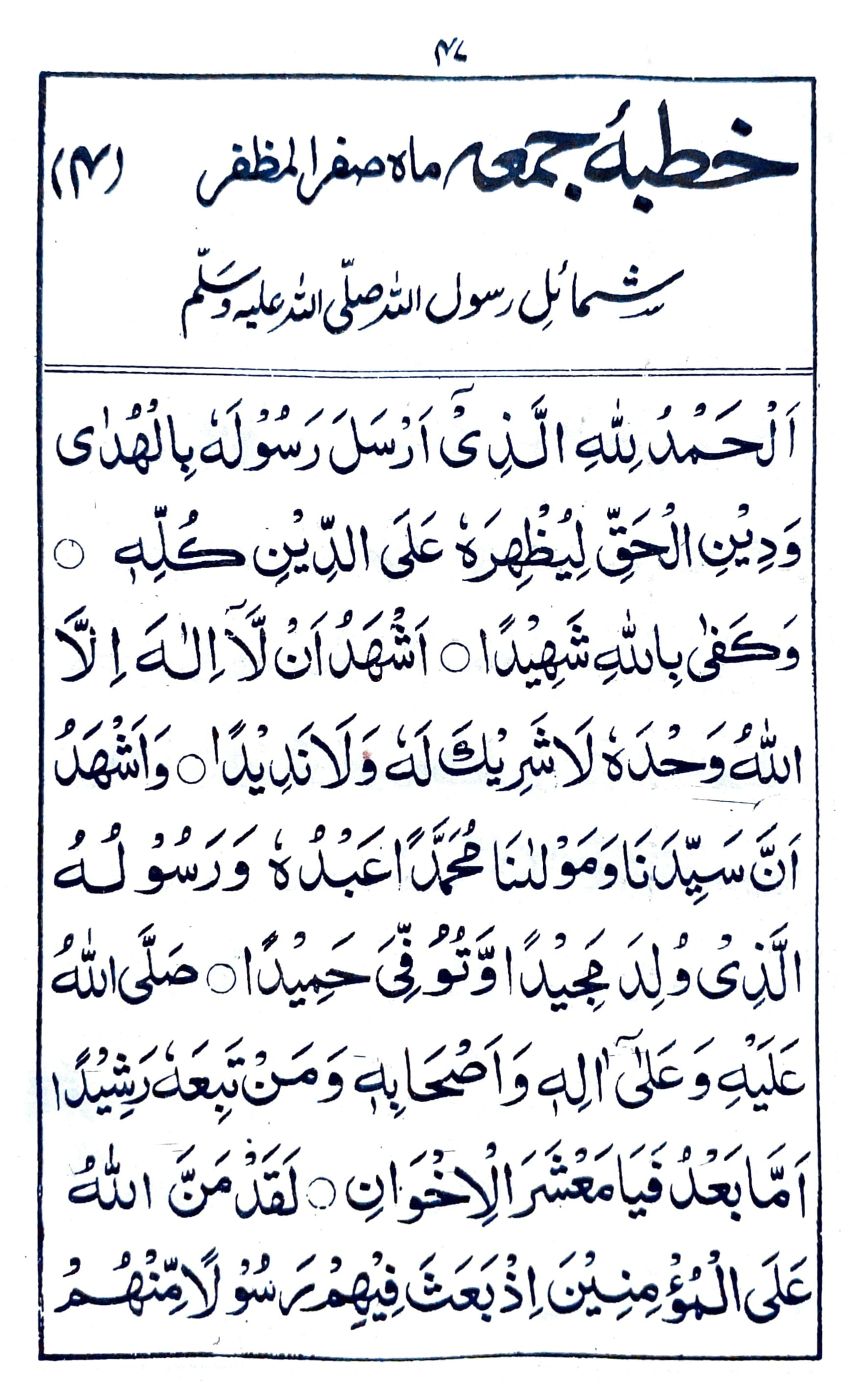 ۴۷
خطبۂ جمعہ ماہ صفر المظفر (۴)
شمائل رسول اللہ صلّی اللہ علیہ وسلّم
اَلْحَمْدُ لِلّٰهِ الَّذِیْۤ اَرْسَلَ رَسُوْلَهٗ بِالْهُدٰی
وَدِیْنِ الْحَقِّ لِیُظْهِرَهٗ عَلَی الدِّیْنِ كُلِّهٖ ○
وَكَفٰی بِاللّٰهِ شَهِیْدًا ○ اَشْهَدُ اَنْ لَّاۤ اِلٰهَ اِلَّا
اللّٰهُ وَحْدَهٗ لَا شَرِیْكَ لَهٗ وَلَا نَدِیْدًا ○ وَاَشْهَدُ
اَنَّ سَیِّدَنَا وَمَوْلٰنَا مُحَمَّدًا عَبْدُهٗ وَرَسُوْلُهُ
الَّذِیْ وُلِدَ مَجِیْدًا وَّتُوُفِّیَ حَمِیْدًا ○ صَلَّی اللّٰهُ
عَلَیْهِ وَعَلٰۤی اٰلِهٖ وَاَصْحَابِهٖ وَمَنْ تَبِعَهٗ رَشِیْدًا
اَمَّا بَعْدُ فَیَا مَعْشَرَ الْاِخْوَانِ ○ لَقَدْ مَنَّ اللّٰهُ
عَلَی الْمُؤْمِنِیْنَ اِذْ بَعَثَ فِیْهِمْ رَسُوْلًا مِّنْهُمْ